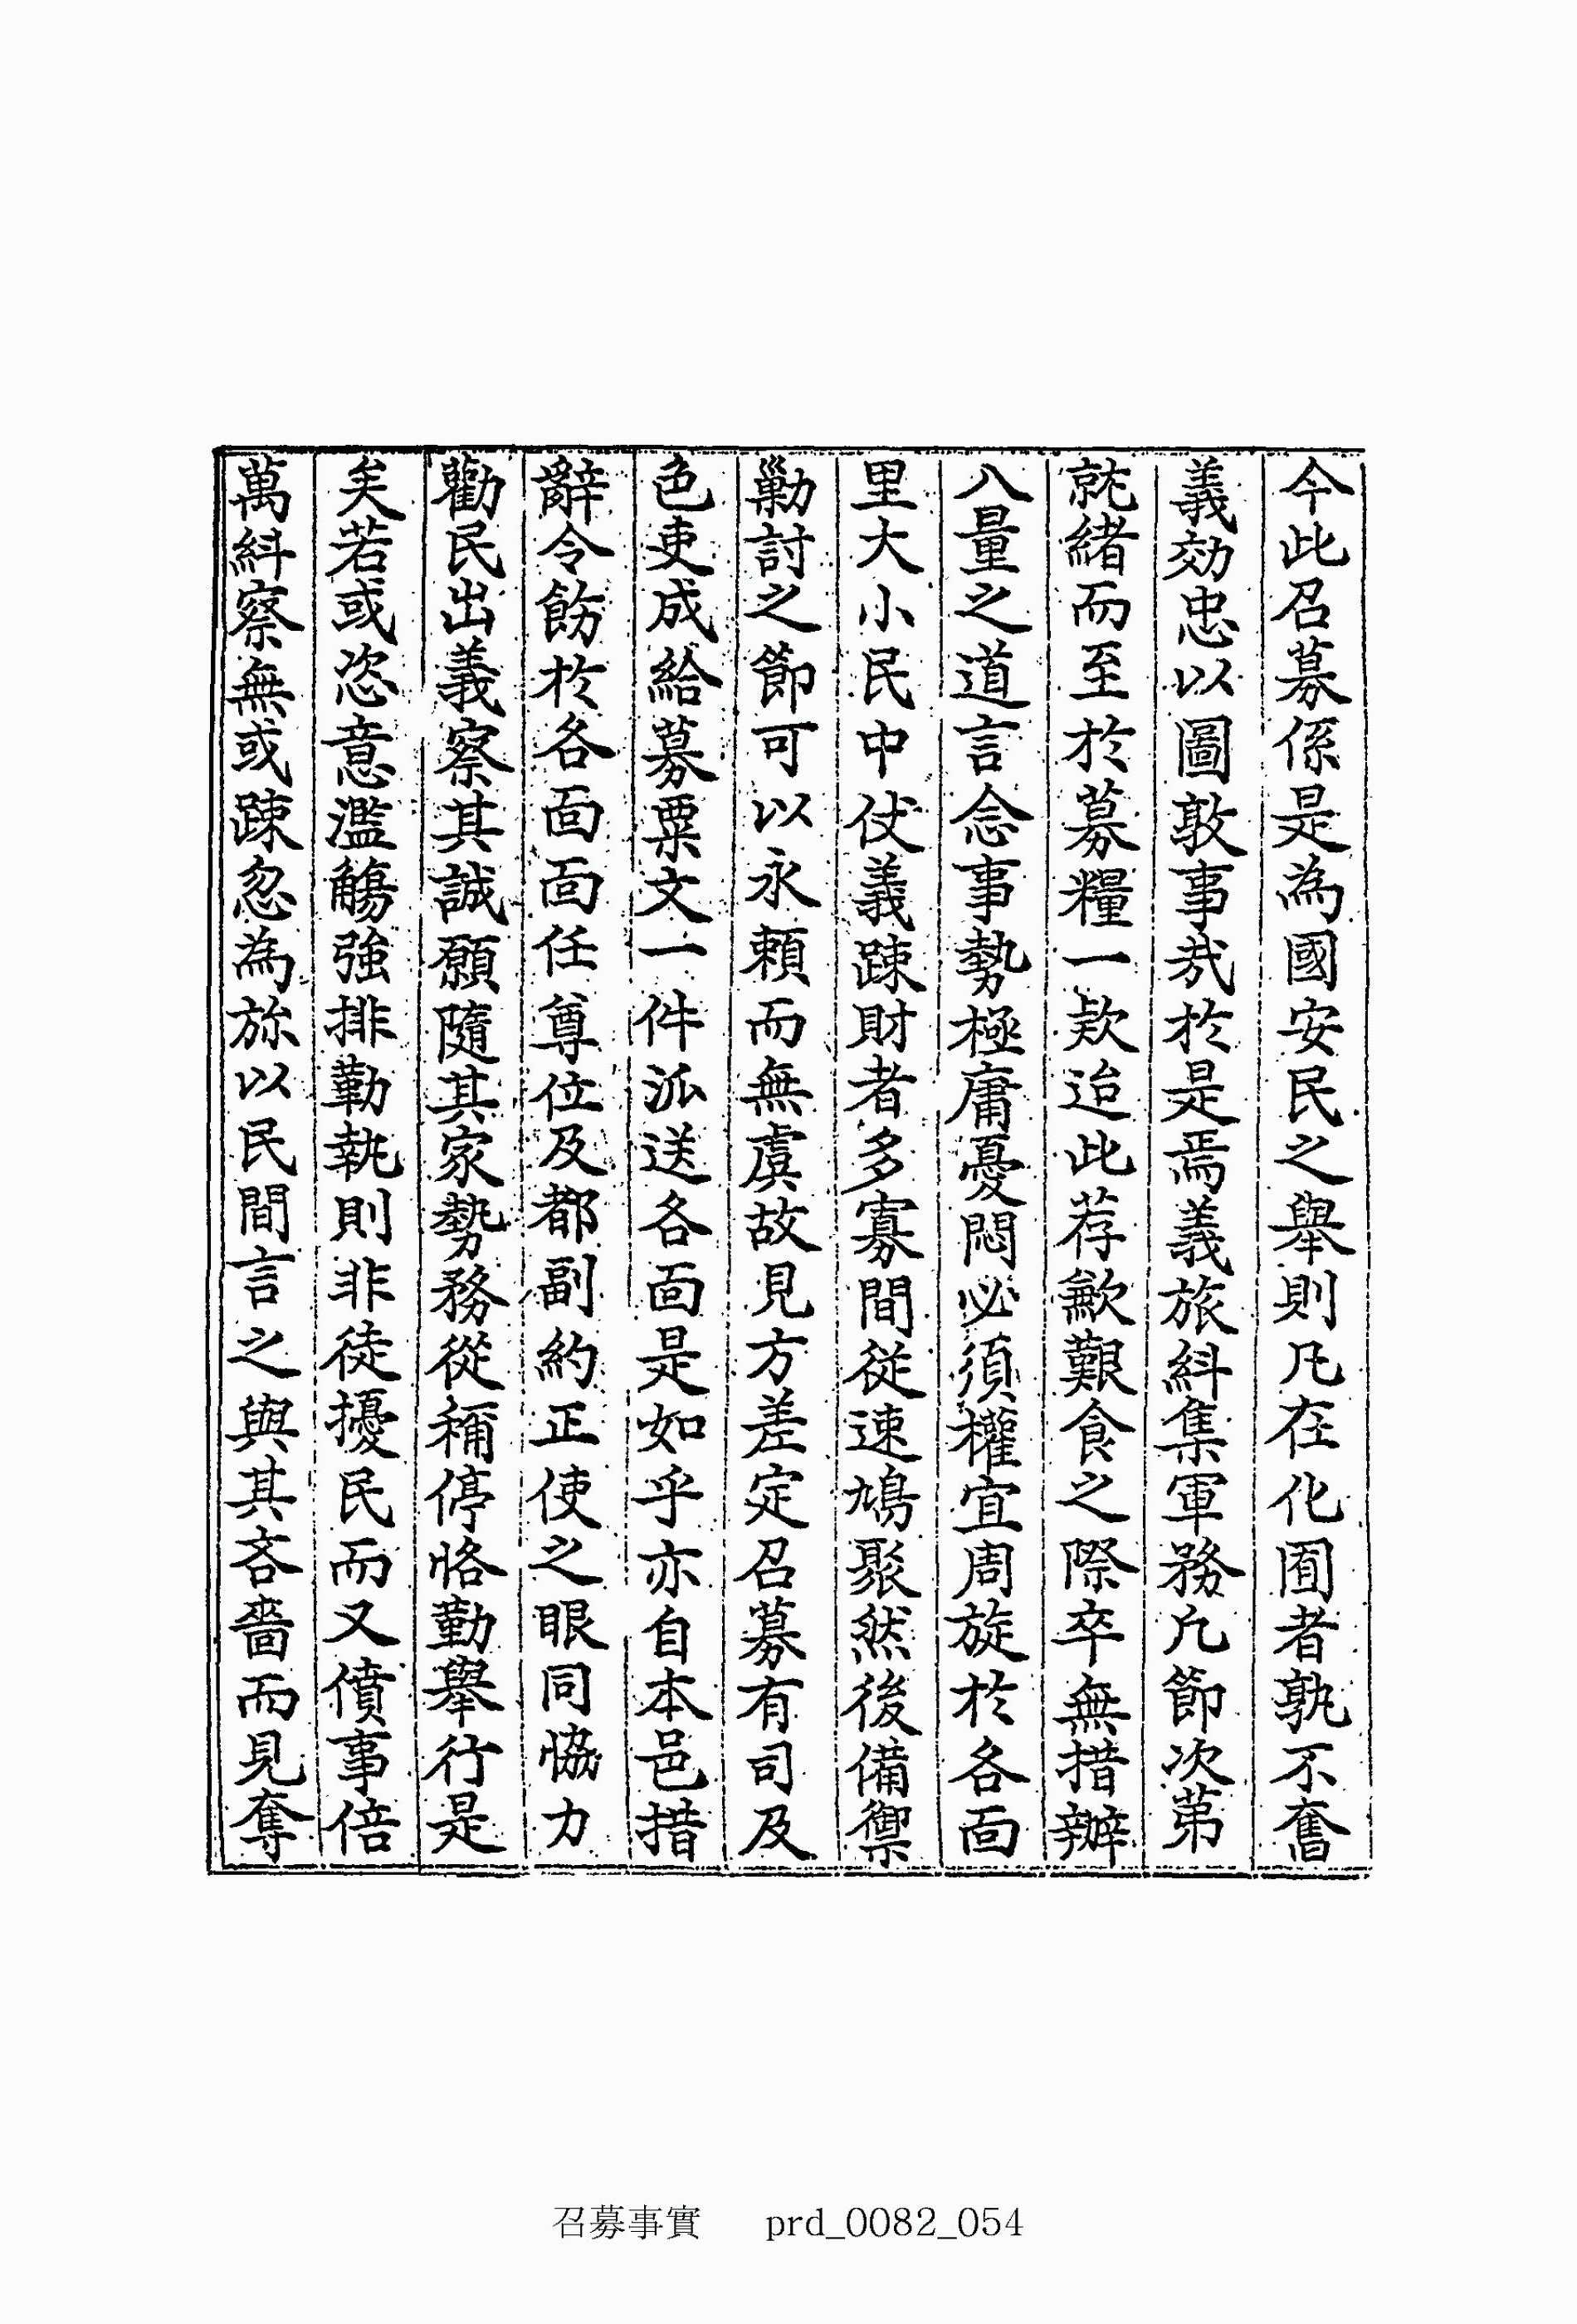 今此召募係是為國安民之舉則凡在化囿者孰不奮
義効忠以圖敦事哉於是焉義旅糾集軍務凡節次苐
就緒而至於募糧一款迨此荐歉艱食之際卒無措辦
八量之道言念事勢極庸憂悶必須權宜周旋於各面
里大小民中仗義踈財者多寡間從速鳩聚然後備禦
勦討之節可以永賴而無虞故見方差定召募有司及
色吏成給募粟文一件派送各面是如乎亦自本邑措
辭令飭於各面面任尊位及都副約正使之眼同恊力
勸民出義察其誠願隨其家勢務從稱停恪勤舉行是
矣若或恣意濫觴強排勒執則非徒擾民而又僨事倍
萬糾察無或踈忽為旀以民間言之與其吝嗇而見奪
召募事實 prd_0082_054